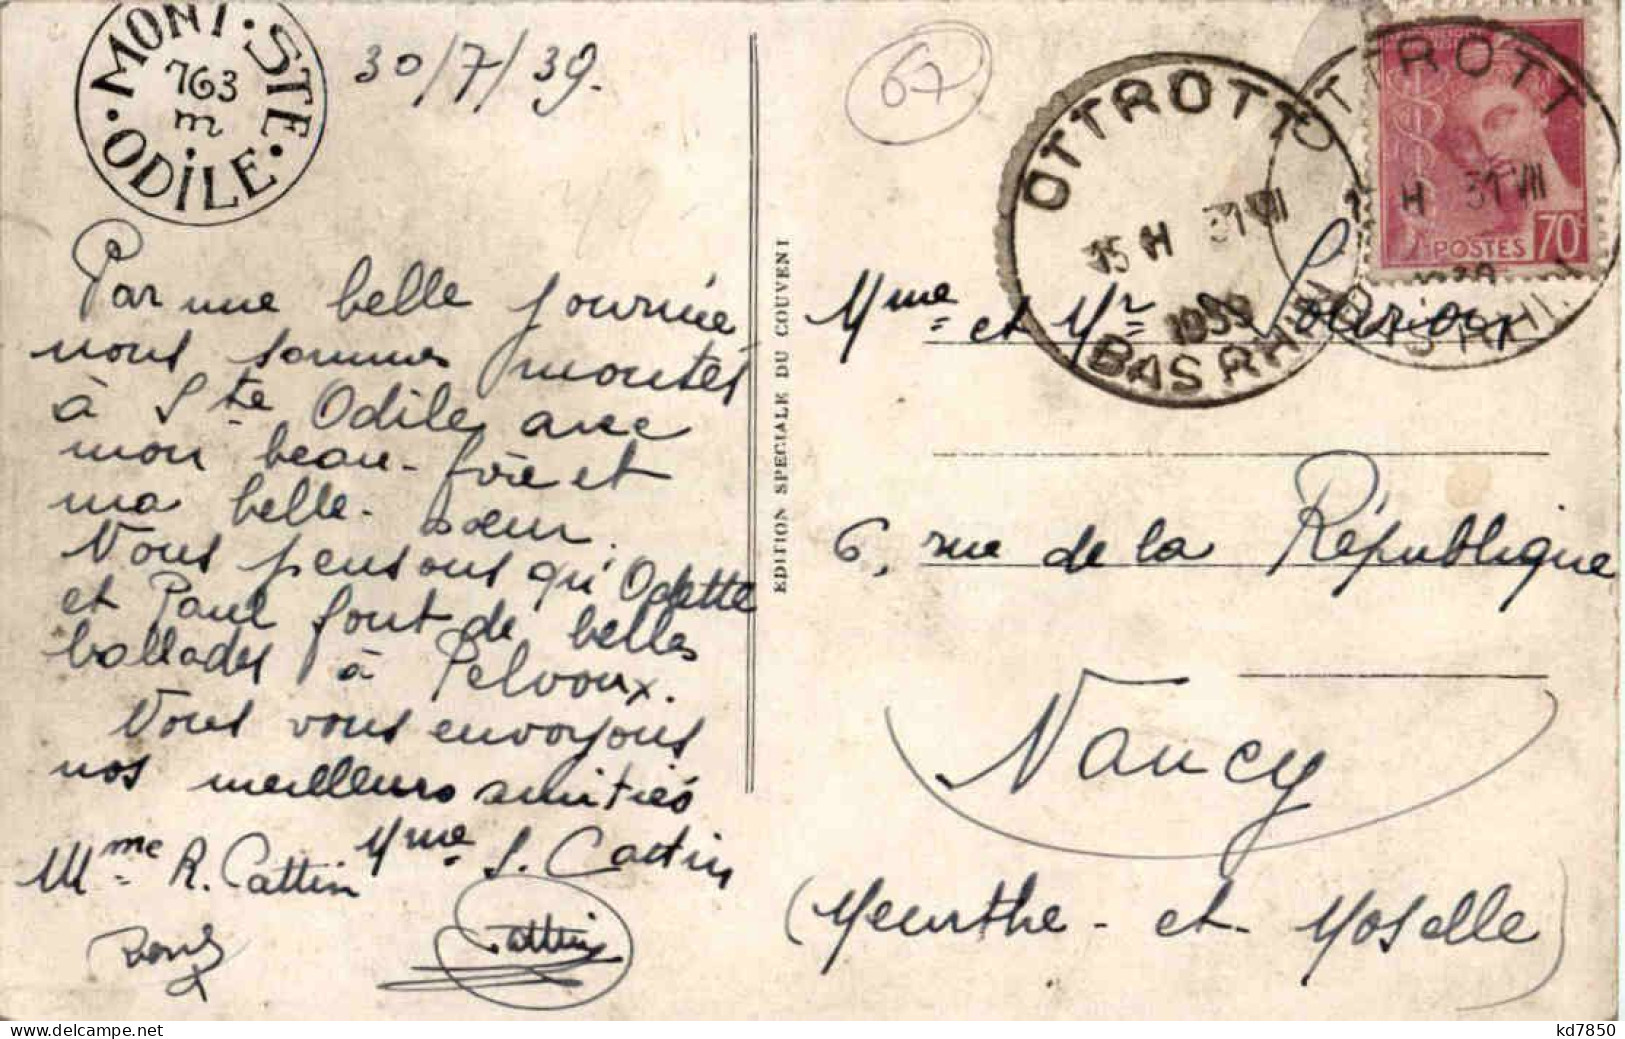 MONT · STE · ODILE ·
763
m
30/7/39.
Par une belle journée
nous sommes montés
à Ste Odile avec
mon beau-frère et
ma belle-sœur.
Nous pensons qu'Odette
et Paul font de belles
ballades à Pelvoux.
Nous vous envoyons
nos meilleurs amitiés
Mme R. Cattin Mme S. Cattin
Cattin
EDITION SPECIALE DU COUVENT
67
OTTROTT
15 H 31 VII
1939
BAS RHIN
OTTROTT
H 31 VII
POSTES 70c
Mme et Mr
6, rue de la République
Nancy
(Meurthe-et-Moselle)
www.delcampe.net
kd7850